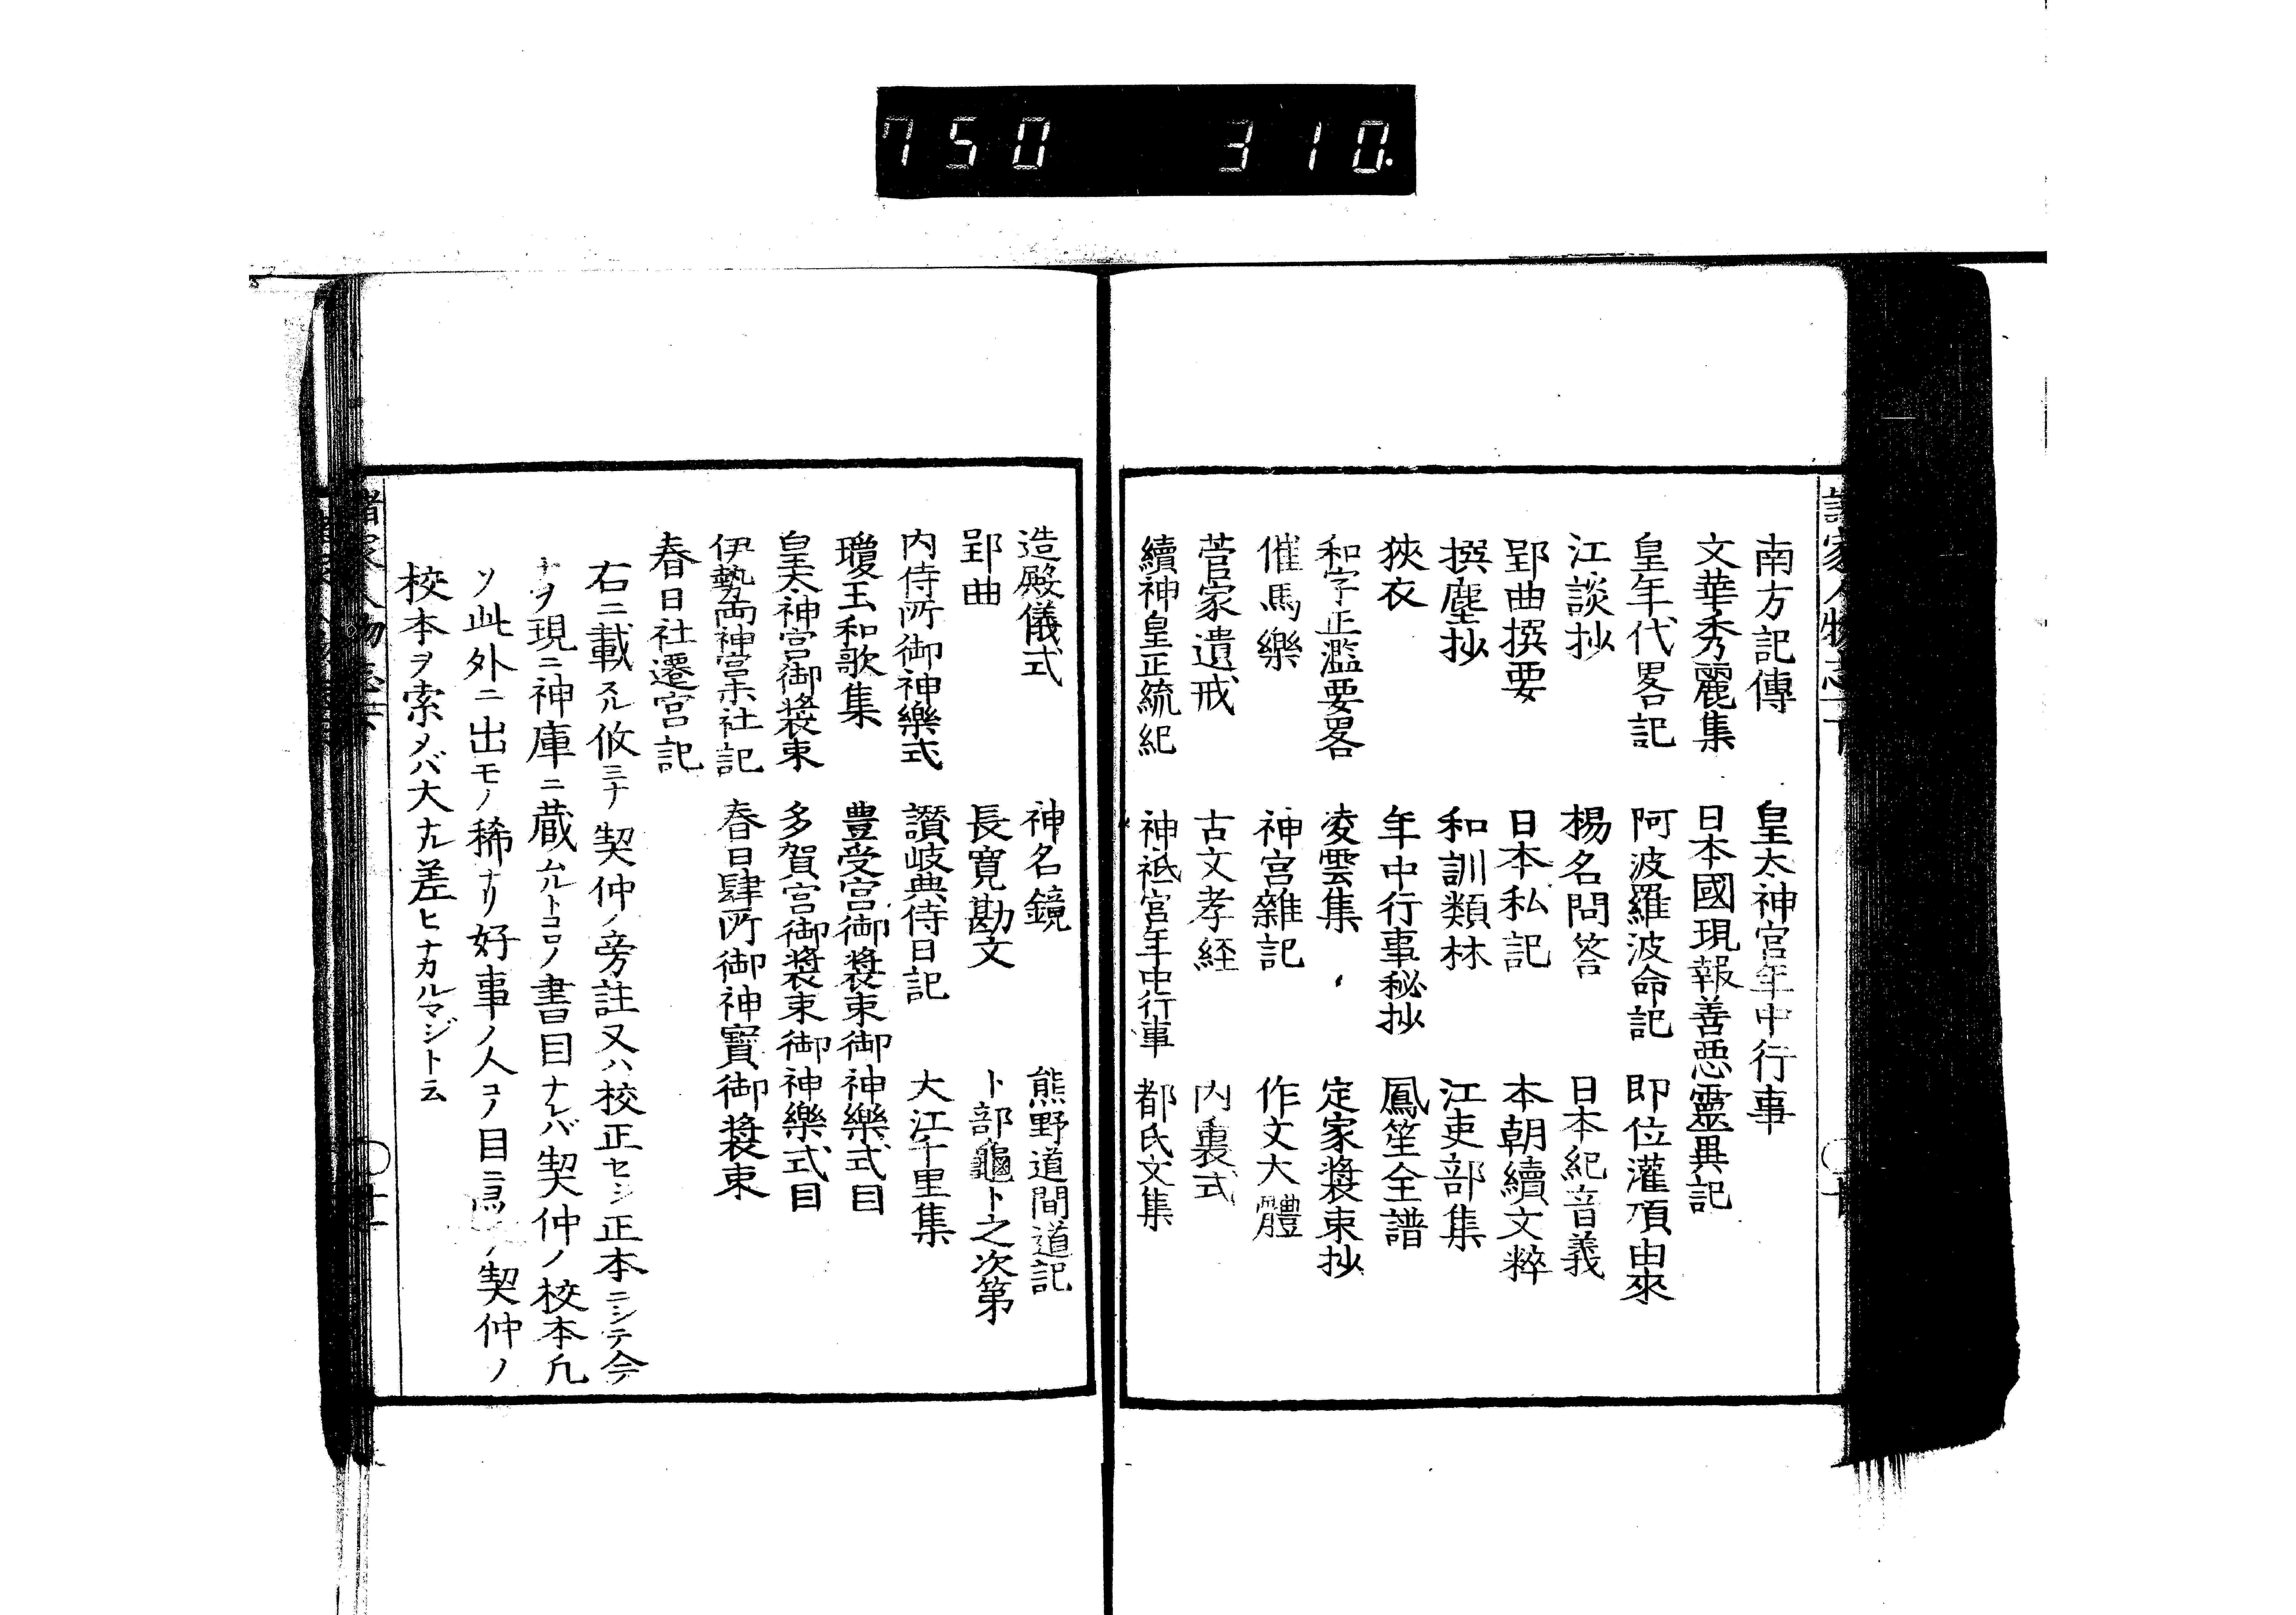 750 310.
南方記傳 皇太神宮年中行事
文華秀麗集 日本國現報善悪靈異記
皇年代畧記 阿波羅波命記 即位灌頂由來
江談抄 楊名問答 日本紀音義
郢曲撰要 日本私記 本朝續文粹
撰塵抄 和訓類林 江吏部集
狹衣 年中行事秘抄 鳳笙全譜
和字正濫要畧 凌雲集 定家裝束抄
催馬樂 神宮雜記 作文大體
菅家遺戒 古文孝経 内裏式
續神皇正統紀 神祇官年中行事 都氏文集
造殿儀式 神名鏡 熊野道間道記
郢曲 長寛勘文 卜部龜卜之次第
内侍所御神樂式 讃岐典侍日記 大江千里集
瓊玉和歌集 豊受宮御裝束御神樂式目
皇太神宮御裝束 多賀宮御裝束御神樂式目
伊勢両神宮末社記 春日肆所御神寶御裝束
春日社遷宮記
右ニ載スル攸ミナ契仲ノ旁註又ハ校正セシ正本ニシテ今
ナヲ現ニ神庫ニ蔵ムルトコロノ書目ナレバ契仲ノ校本凡
ソ此外ニ出モノ稀ナリ好事ノ人コノ目ニ 契仲ノ
校本ヲ索メバ大ナル差ヒナカルマジト云
諸家人物志下